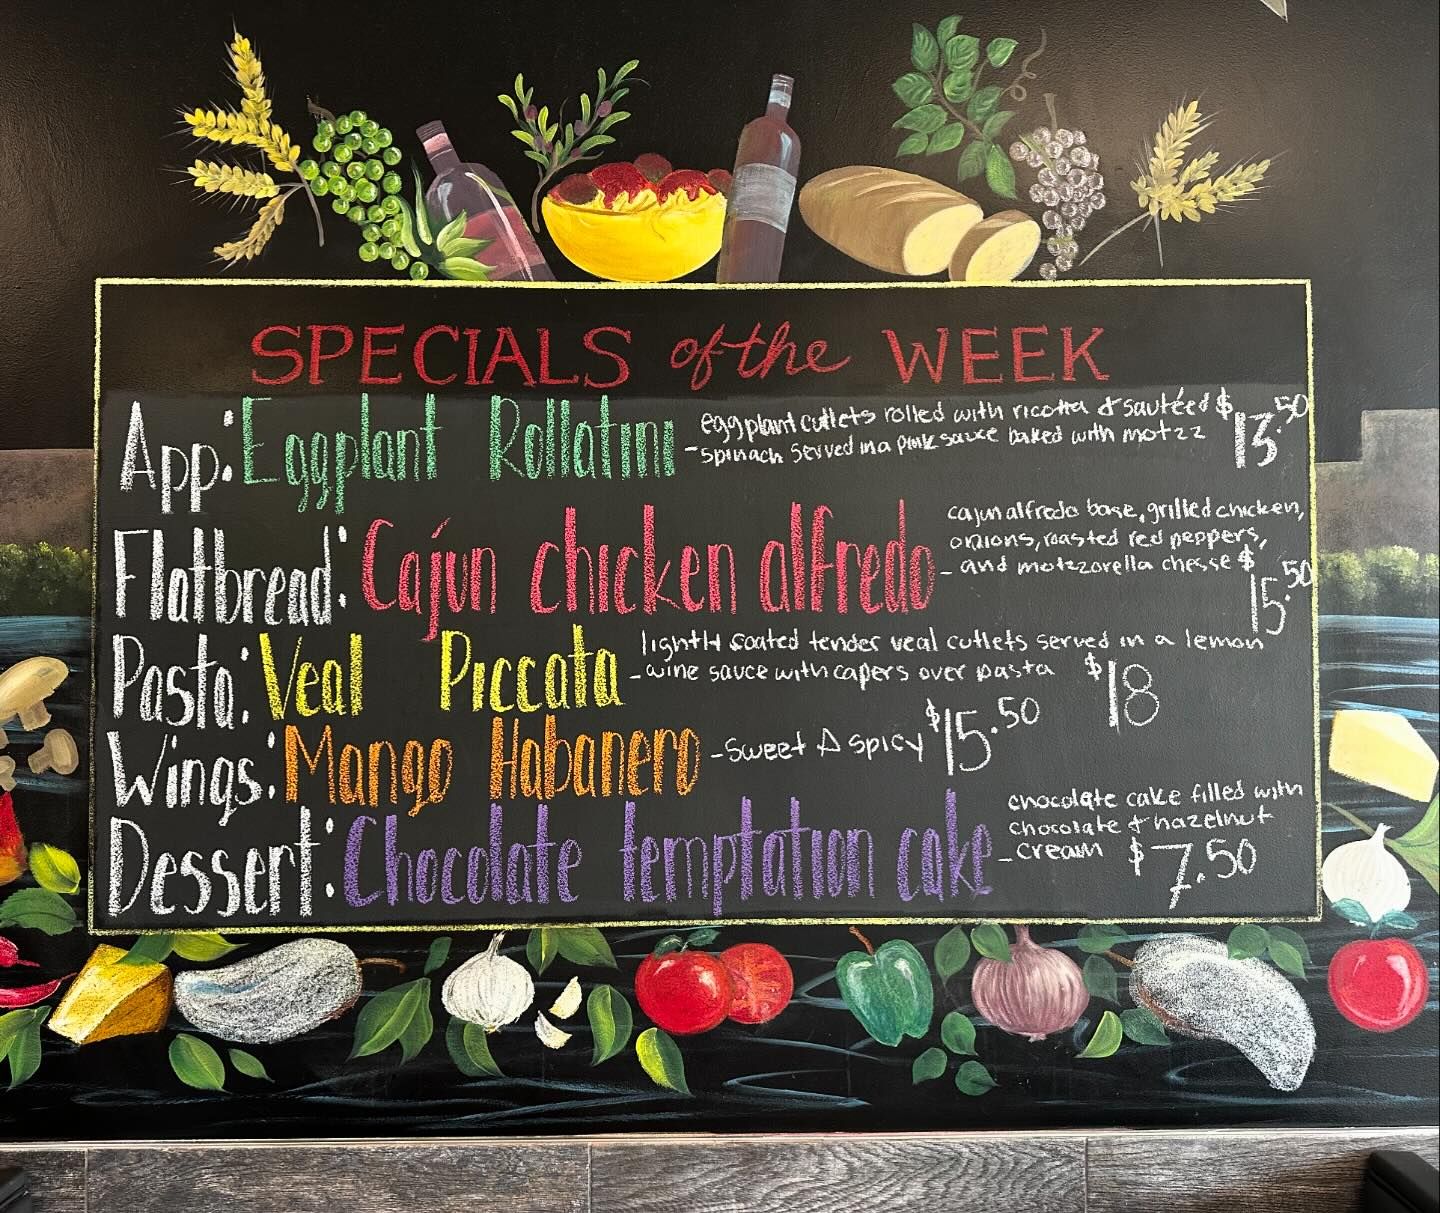 SPECIALS of the WEEK
App: Eggplant Rollatini - eggplant cutlets rolled with ricotta & sautéed
spinach served in a pink sauce baked with motzz $13.50
Flatbread: Cajun chicken alfredo - cajun alfredo base, grilled chicken,
onions, roasted red peppers,
and motzzorella chesse $15.50
Pasta: Veal Piccata - lightly coated tender veal cutlets served in a lemon
wine sauce with capers over pasta $18
Wings: Mango Habanero - Sweet & Spicy $15.50
Dessert: Chocolate temptation cake - chocolate cake filled with
chocolate & hazelnut
cream $7.50